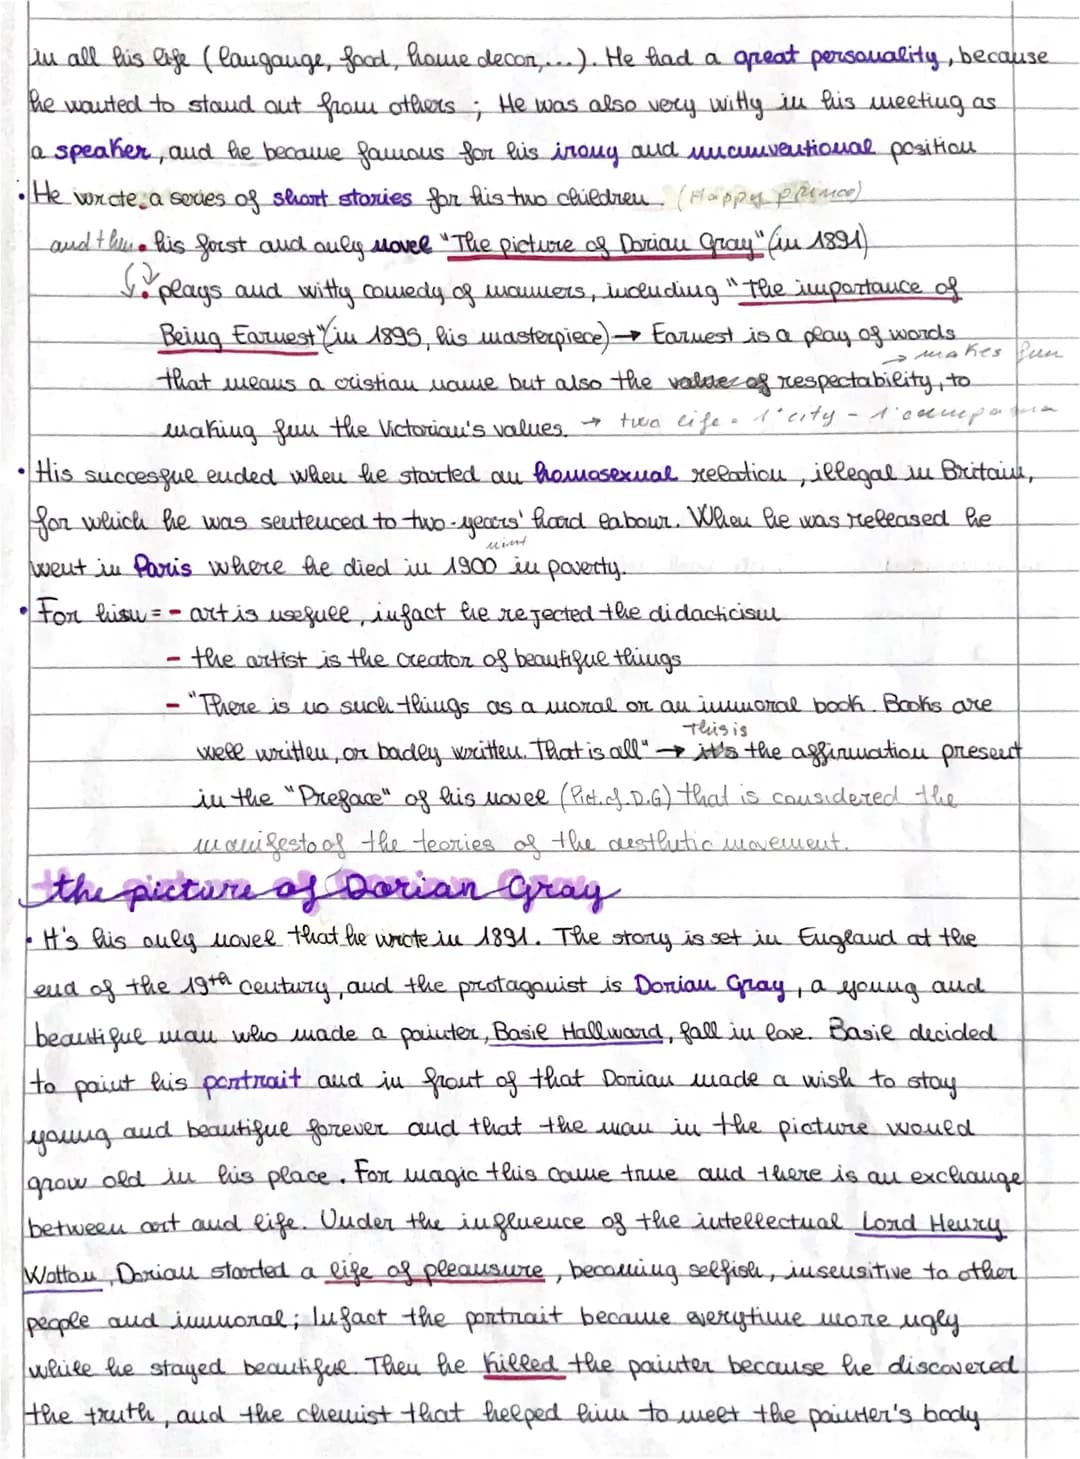 in all his life (laugauge, food, home decor,...). He had a great personality, because
he wanted to stand out from others ; He was also very witty in his meeting as
a speaker, and he became famous for his irony and uncunventional position
• He wrote a series of short stories for his two children. (Happy prince)
and then • his first and only novel "The picture of Dorian Gray" (in 1891)
• plays and witty comedy of manners, including "The importance of
Being Earnest" (in 1895, his masterpiece) → Earnest is a play of words
→ makes fun
that means a cristian name but also the values of respectability, to
making fun the Victorian's values. → two life = 1° city -
• His succesful ended when he started an homosexual relation, illegal in Britain,
for which he was sentenced to two-years' hard labour. When he was released he
went in Paris where he died in 1900 in poverty.
• For him = - art is usefull, infact he rejected the didacticism
- the artist is the creator of beautiful things
- "There is no such things as a moral or an immoral book. Books are
well written, or badly written. That is all" → it's the affirmation present
This is
in the "Preface" of his novel (Pict.of.D.G) that is considered the
manifesto of the teories of the aesthetic movement.
the picture of Dorian Gray
• It's his only novel that he wrote in 1891. The story is set in England at the
end of the 19th century, and the protagonist is Dorian Gray, a young and
beautiful man who made a painter, Basil Hallward, fall in love. Basil decided
to paint his portrait and in front of that Dorian made a wish to stay
young and beautiful forever and that the man in the picture would
grow old in his place. For magic this came true and there is an exchange
between art and life. Under the influence of the intellectual Lord Henry
Wotton, Dorian started a life of pleausure, becoming selfish, insensitive to other
people and immoral; Infact the portrait became everytime more ugly
while he stayed beautiful. Then he killed the painter because he discovered
the truth, and the chemist that helped him to meet the painter's body